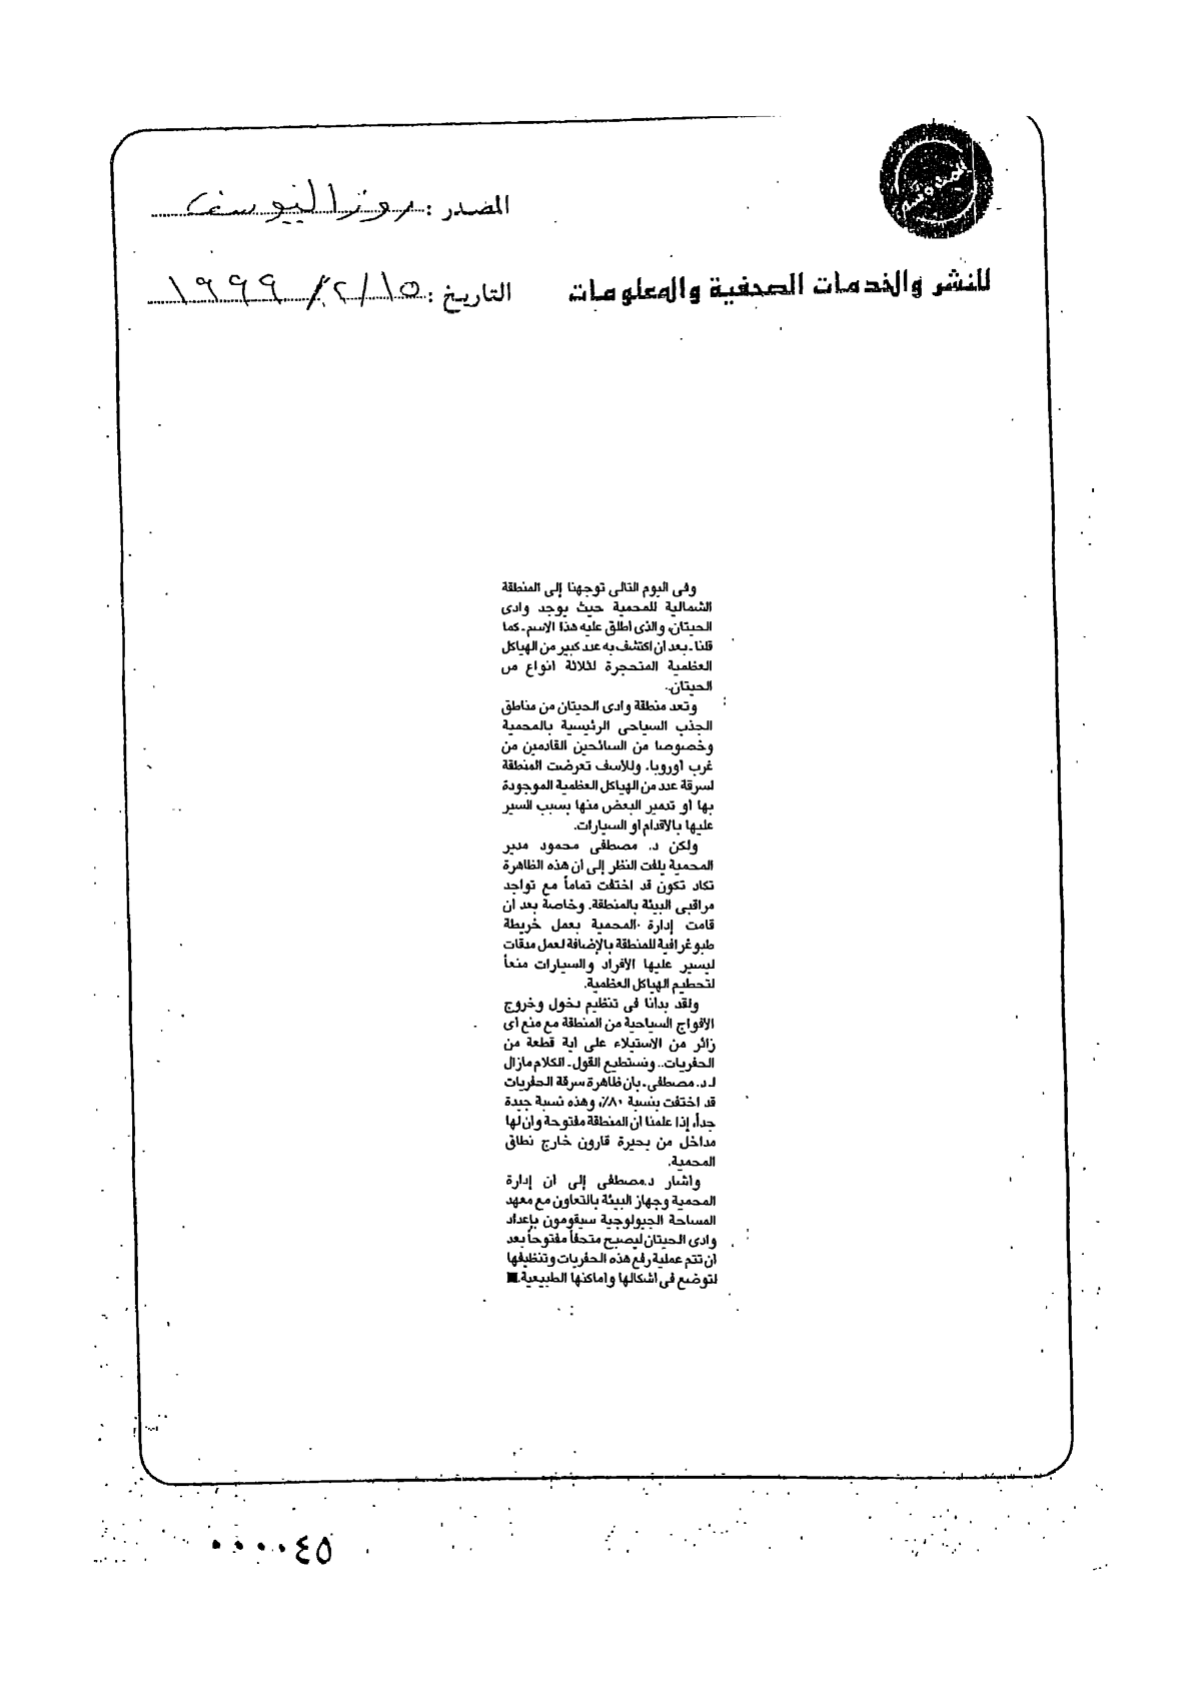 المصدر : روز اليوسف
للنشر والخدمات الصحفية والمعلومات
التاريخ : ١٥/٢/١٩٩٩
وفى اليوم التالى توجهنا إلى المنطقة
الشمالية للمحمية حيث يوجد وادى
الحيتان، والذى أطلق عليه هذا الاسم ـ كما
قلنا ـ بعد أن اكتشف به عدد كبير من الهياكل
العظمية المتحجرة لثلاثة أنواع من
الحيتان.
وتعد منطقة وادى الحيتان من مناطق
الجذب السياحى الرئيسية بالمحمية
وخصوصا من السائحين القادمين من
غرب أوروبا، وللأسف تعرضت المنطقة
لسرقة عدد من الهياكل العظمية الموجودة
بها أو تدمير البعض منها بسبب السير
عليها بالأقدام أو السيارات.
ولكن د. مصطفى محمود مدير
المحمية يلفت النظر إلى أن هذه الظاهرة
تكاد تكون قد اختفت تماماً مع تواجد
مراقبى البيئة بالمنطقة، وخاصة بعد أن
قامت إدارة المحمية بعمل خريطة
طبوغرافية للمنطقة بالإضافة لعمل مدقات
ليسير عليها الأفراد والسيارات منعاً
لتحطيم الهياكل العظمية.
ولقد بدأنا فى تنظيم دخول وخروج
الأفواج السياحية من المنطقة مع منع أى
زائر من الاستيلاء على أية قطعة من
الحفريات.. ونستطيع القول ـ الكلام مازال
لـ د. مصطفى ـ بأن ظاهرة سرقة الحفريات
قد اختفت بنسبة ٨٠٪، وهذه نسبة جيدة
جداً، إذا علمنا أن المنطقة مفتوحة وأن لها
مداخل من بحيرة قارون خارج نطاق
المحمية.
وأشار د.مصطفى إلى أن إدارة
المحمية وجهاز البيئة بالتعاون مع معهد
المساحة الجيولوجية سيقومون بإعداد
وادى الحيتان ليصبح متحفاً مفتوحاً بعد
أن تتم عملية رفع هذه الحفريات وتنظيفها
لتوضع فى أشكالها وأماكنها الطبيعية.■
٠٠٠٠٤٥